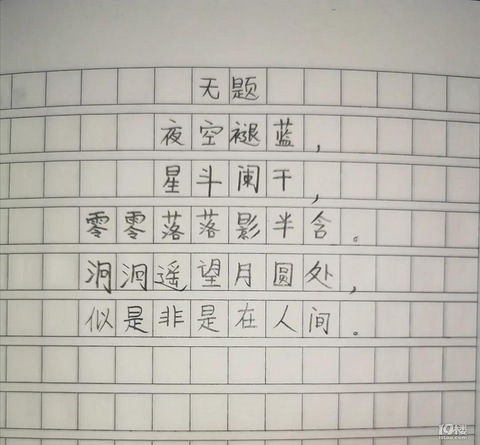 无题
夜空褪蓝，
星斗阑干，
零零落落影半含。
泂泂遥望月圆处，
似是非是在人间。
19楼